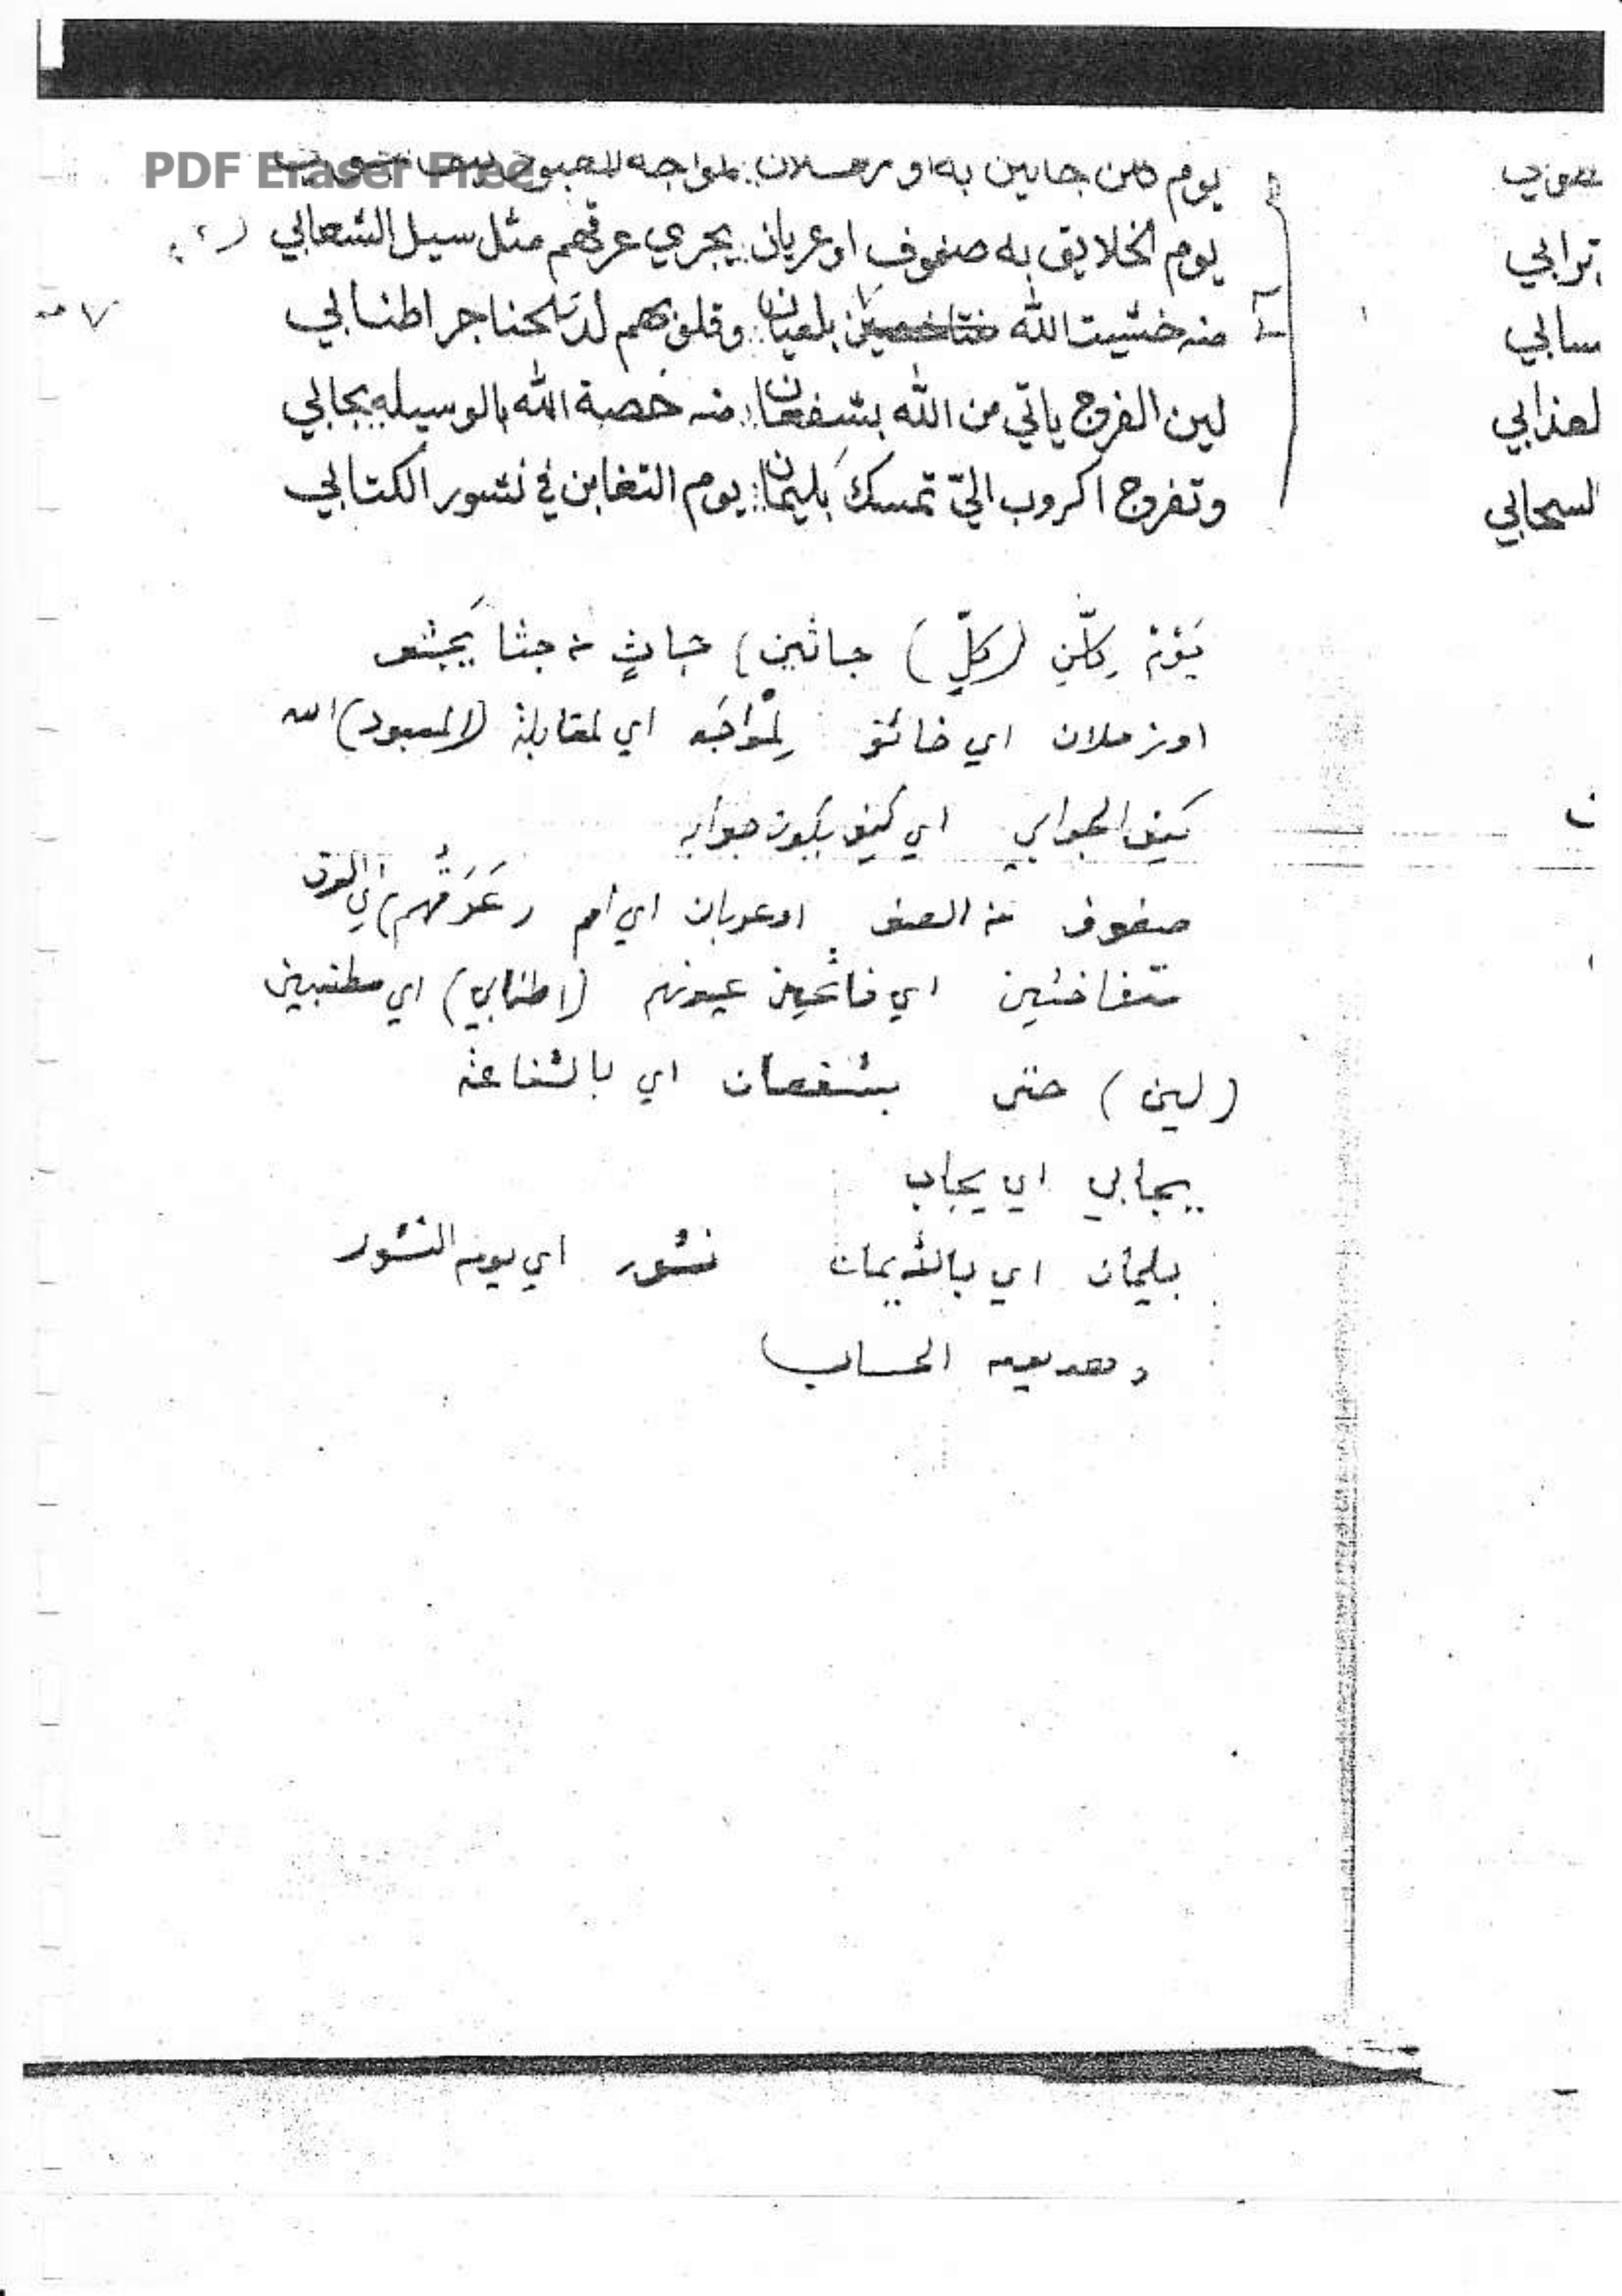 PDF Eraser Free
يوم كلن جاثين به او زهلان لمواجه المعبود كيف
يوم الخلايق به صفوف او عريان يجري عرقهم مثل سيل الشعابي
منه خشيت الله بلعيان وقلوبهم لد الحناجر اطنابي
لين الفرج ياتي من الله بشفعان منه خصة الله بالوسيله يجابي
وتفرج اكروب اليّ تمسك بليمان يوم التغابن في نشور الكتابي
ترابي
سابي
لعذابي
السحابي
يَوْمْ كلّنٍ (كلٍّ) جاثين) جاثٍ من جثا يَجثو
اي خائف لِمْواجَه اي لمقابلة (المعبود) الله
كيف الجوابي اي كيف يكون جوابه
صفوف من الصف او عريان اي ام رعَرَقُهم) اي العرق
متفاختين اي فاتحين عيونهم (اطنابي) اي مطنبين
(لين) حتى بشفعان اي بالشفاعة
يجابي اي يجاب
بليمان اي بالأيمان نشور اي يوم النشور
وهو يوم الحساب